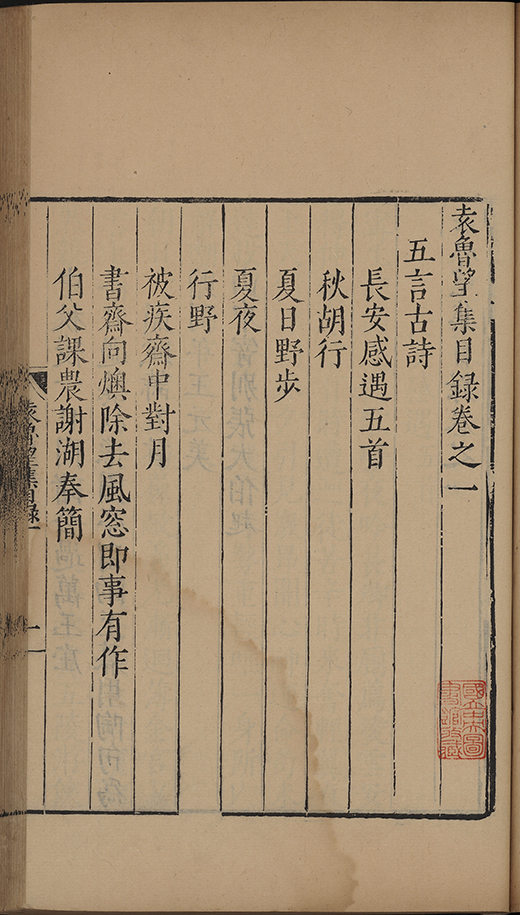 袁魯望集目録卷之一
五言古詩
長安感遇五首
秋胡行
夏日野步
夏夜
行野
被疾齋中對月
書齋向燠除去風窓即事有作
伯父課農謝湖奉簡
袁魯望集目録
一
國立中央圖書館收藏